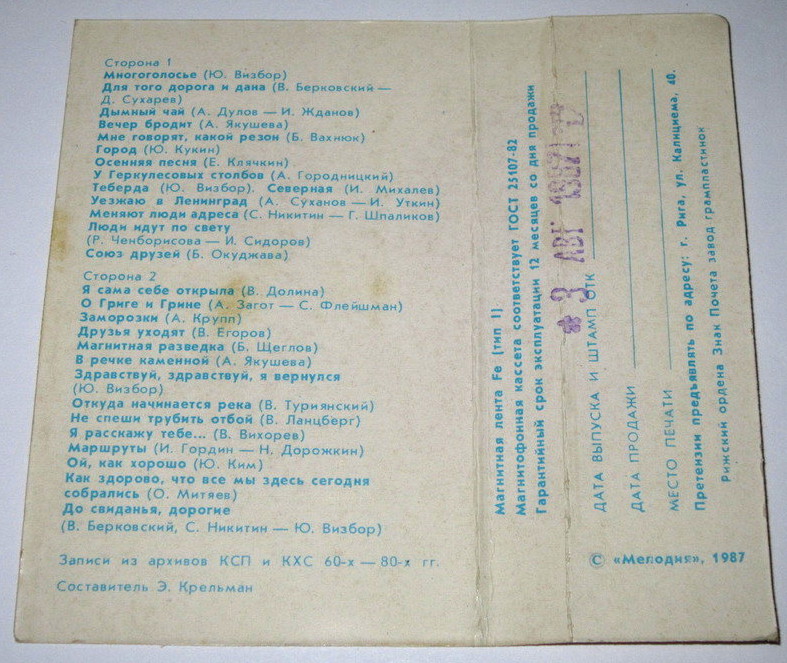 Сторона 1
Многоголосье (Ю. Визбор)
Для того дорога и дана (В. Берковский —
Д. Сухарев)
Дымный чай (А. Дулов — И. Жданов)
Вечер бродит (А. Якушева)
Мне говорят, какой резон (Б. Вахнюк)
Город (Ю. Кукин)
Осенняя песня (Е. Клячкин)
У Геркулесовых столбов (А. Городницкий)
Теберда (Ю. Визбор). Северная (И. Михалев)
Уезжаю в Ленинград (А. Суханов — И. Уткин)
Меняют люди адреса (С. Никитин — Г. Шпаликов)
Люди идут по свету
(Р. Ченборисова — И. Сидоров)
Союз друзей (Б. Окуджава)
Сторона 2
Я сама себе открыла (В. Долина)
О Григе и Грине (А. Загот — С. Флейшман)
Заморозки (А. Крупп)
Друзья уходят (В. Егоров)
Магнитная разведка (Б. Щеглов)
В речке каменной (А. Якушева)
Здравствуй, здравствуй, я вернулся
(Ю. Визбор)
Откуда начинается река (В. Туриянский)
Не спеши трубить отбой (В. Ланцберг)
Я расскажу тебе... (В. Вихорев)
Маршруты (И. Гордин — Н. Дорожкин)
Ой, как хорошо (Ю. Ким)
Как здорово, что все мы здесь сегодня
собрались (О. Митяев)
До свиданья, дорогие
(В. Берковский, С. Никитин — Ю. Визбор)
Записи из архивов КСП и КХС 60-х — 80-х гг.
Составитель Э. Крельман
Магнитная лента Fe [тип I]
Магнитофонная кассета соответствует ГОСТ 25107-82
Гарантийный срок эксплуатации 12 месяцев со дня продажи
3 АВГ
ДАТА ВЫПУСКА И ШТАМП ОТК
ДАТА ПРОДАЖИ
МЕСТО ПЕЧАТИ
Претензии предъявлять по адресу: г. Рига, ул. Калнциема, 40.
Рижский ордена Знак Почета завод грампластинок
© «Мелодия», 1987